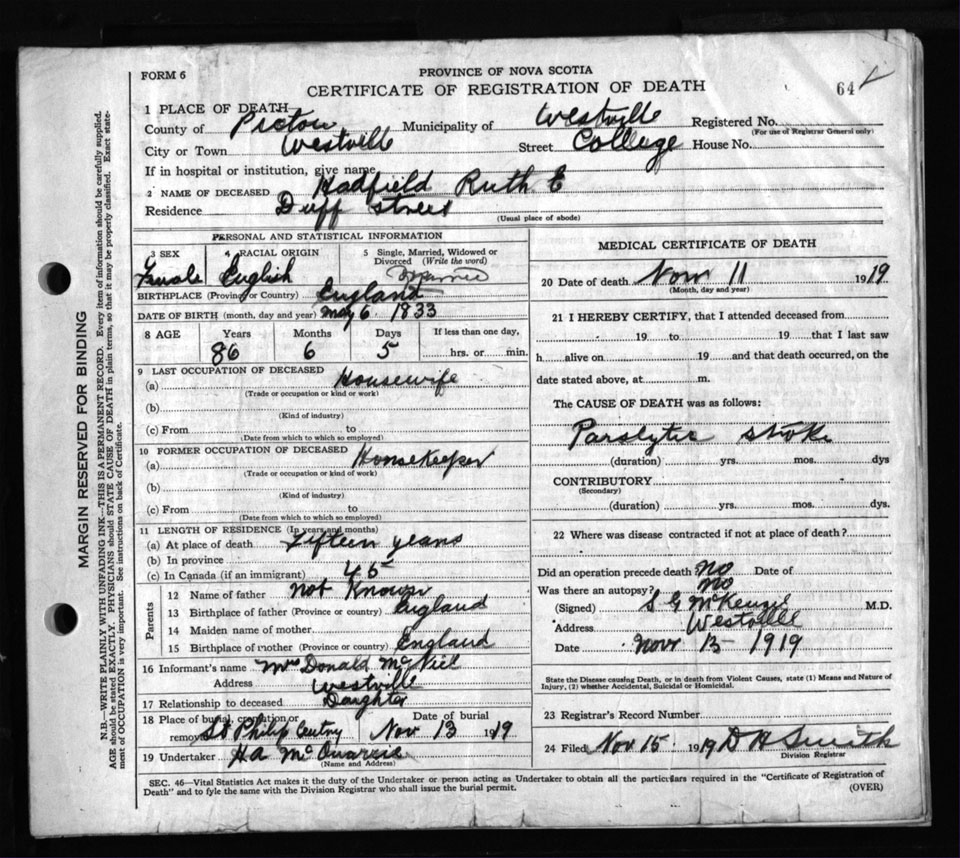 FORM 6
PROVINCE OF NOVA SCOTIA
CERTIFICATE OF REGISTRATION OF DEATH
64
1 PLACE OF DEATH
County of Pictou Municipality of Westville Registered No.
(For use of Registrar General only)
City or Town Westville Street College House No.
If in hospital or institution, give name
2 NAME OF DECEASED Hadfield Ruth E
Residence Duff Street
(Usual place of abode)
PERSONAL AND STATISTICAL INFORMATION
3 SEX 4 RACIAL ORIGIN 5 Single, Married, Widowed or Divorced (Write the word)
Female English Married
BIRTHPLACE (Province or Country) England
DATE OF BIRTH (month, day and year) May 6 1833
8 AGE Years Months Days If less than one day,
86 6 5 hrs. or min.
9 LAST OCCUPATION OF DECEASED
(a) Housewife
(Trade or occupation or kind of work)
(b)
(Kind of industry)
(c) From to
(Date from which to which so employed)
10 FORMER OCCUPATION OF DECEASED
(a) Housekeeper
(Trade or occupation or kind of work)
(b)
(Kind of industry)
(c) From to
(Date from which to which so employed)
11 LENGTH OF RESIDENCE (In years and months)
(a) At place of death fifteen years
(b) In province
(c) In Canada (if an immigrant) 45
Parents
12 Name of father not Known
13 Birthplace of father (Province or country) England
14 Maiden name of mother
15 Birthplace of mother (Province or country) England
16 Informant's name Mrs Donald McNeil
Address Westville
17 Relationship to deceased Daughter
18 Place of burial, cremation or removal St Philip Date of burial Nov 13 1919
19 Undertaker H A
(Name and Address)
MEDICAL CERTIFICATE OF DEATH
20 Date of death Nov 11 1919
(Month, day and year)
21 I HEREBY CERTIFY, that I attended deceased from
19 to 19 that I last saw
h alive on 19 and that death occurred, on the
date stated above, at m.
The CAUSE OF DEATH was as follows:
Paralytic stroke
(duration) yrs. mos. dys
CONTRIBUTORY
(Secondary)
(duration) yrs. mos. dys.
22 Where was disease contracted if not at place of death?
Did an operation precede death No Date of
Was there an autopsy? No
(Signed) S G McKenzie M.D.
Address Westville
Date Nov 13 1919
State the Disease causing Death, or in death from Violent Causes, state (1) Means and Nature of
Injury, (2) whether Accidental, Suicidal or Homicidal.
23 Registrar's Record Number
24 Filed Nov 15 1919 D H Smith
Division Registrar
SEC. 46—Vital Statistics Act makes it the duty of the Undertaker or person acting as Undertaker to obtain all the particulars required in the "Certificate of Registration of
Death" and to fyle the same with the Division Registrar who shall issue the burial permit.
(OVER)
MARGIN RESERVED FOR BINDING
N.B.—WRITE PLAINLY WITH UNFADING INK—THIS IS A PERMANENT RECORD. Every item of information should be carefully supplied.
AGE should be stated EXACTLY. PHYSICIANS should STATE CAUSE OF DEATH in plain terms, so that it may be properly classified. Exact state-
ment of OCCUPATION is very important. See instructions on back of Certificate.